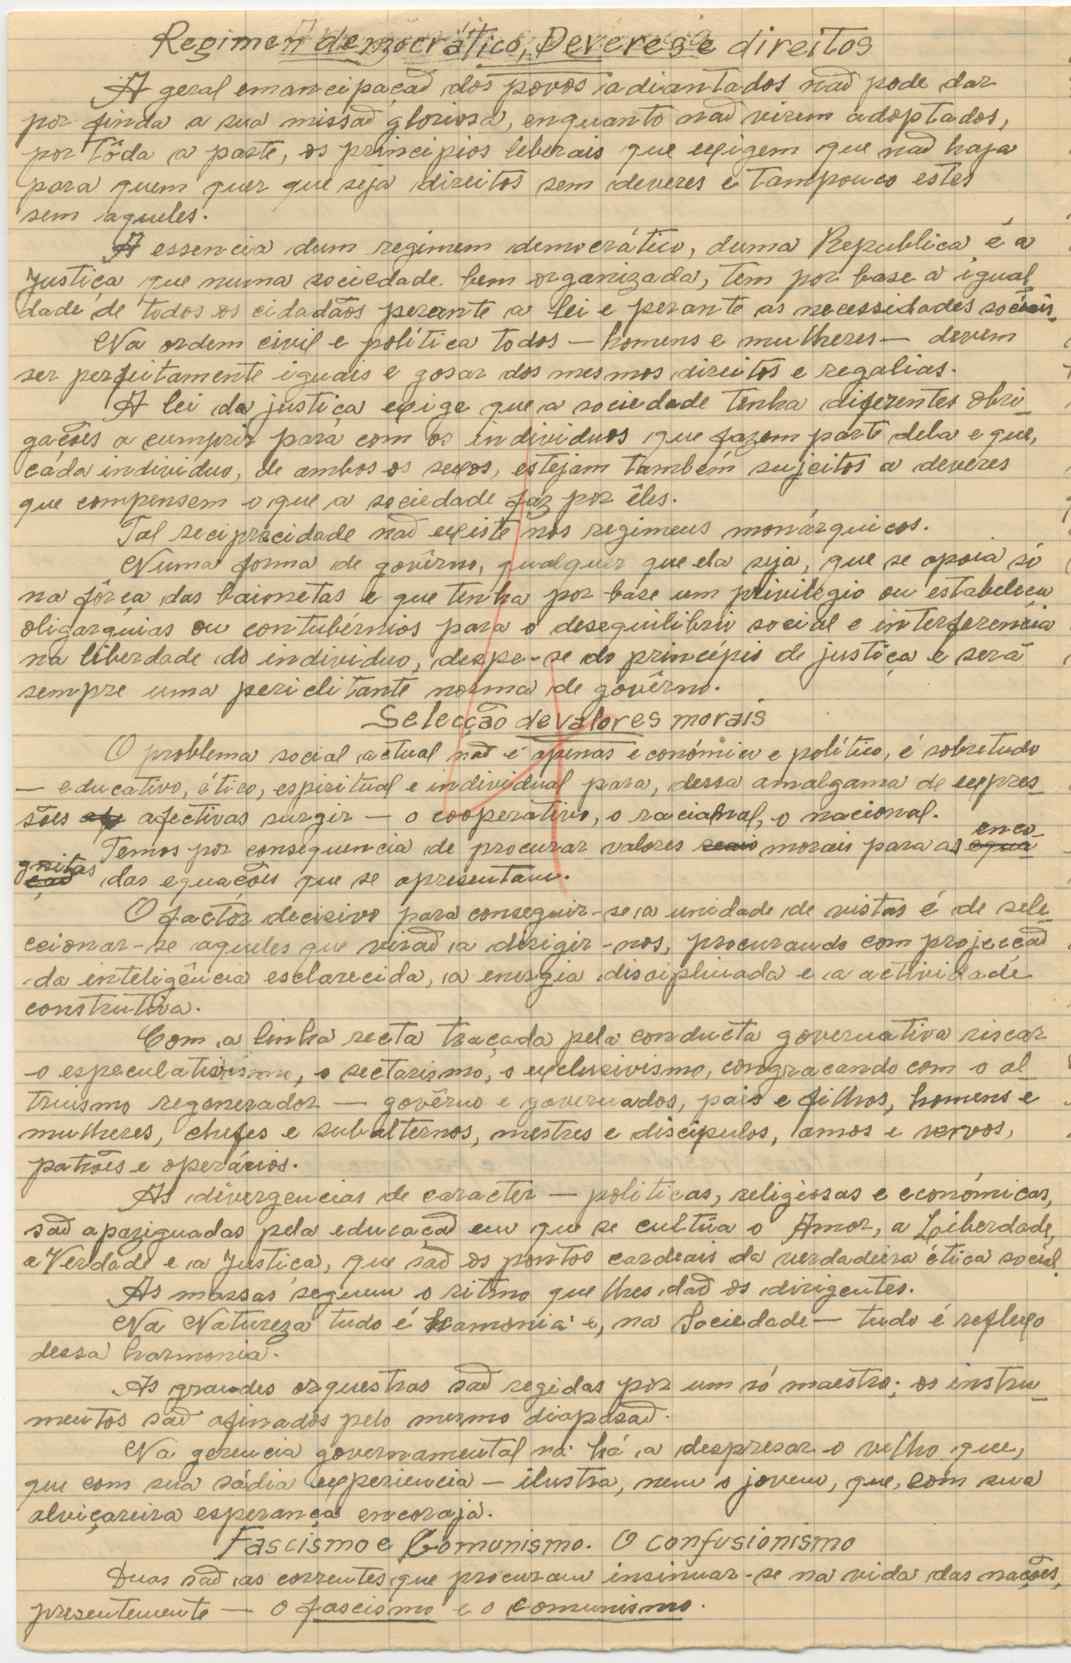 Regimen democrático, Deveres e direitos
A geral emancipação dos povos adiantados não pode dar
por finda a sua missão gloriosa, enquanto não virem adoptados,
por tôda a parte, os principios liberais que exigem que não haja
para quem quer que seja direitos sem deveres e tampouco estes
sem aqueles.
A essencia dum regimem democrático, duma Republica é a
Justiça que numa sociedade bem organizada, tem por base a igual
dade de todos os cidadãos perante a lei e perante as necessidades sociais.
Na ordem civil e política todos — homens e mulheres — devem
ser perfeitamente iguais e gosar dos mesmos direitos e regalias.
A lei da justiça exige que a sociedade tenha diferentes obri-
gações a cumprir para com os individuos que fazem parte dela e que,
cada individuo, de ambos os sexos, estejam também sujeitos a deveres
que compensem o que a sociedade faz por êles.
Tal reciprocidade não existe nos regimens monárquicos.
Numa forma de govêrno, qualquer que ela seja, que se apoia só
na fôrça das baionetas e que tenha por base um privilégio ou estabeleça
oligarquias ou contubérnios para o desequilibrio social e interferencia
na liberdade do individuo, despe-se do principio de justiça e será
sempre uma periclitante norma de govêrno.
Selecção de valores morais
O problema social actual não é apenas económico e político, é sobretudo
— educativo, ético, espiritual e individual para, dessa amalgama de expres-
sões af afectivas surgir — o cooperativo, o racional, o nacional.
Temos por consequencia de procurar valores reais morais para as equa- enco-
ção gnitas das equações que se apresentam.
O factor decisivo para conseguir-se a unidade de vistas é de sele-
ccionar-se aqueles que virão a dirigir-nos, procurando com projecção
da inteligência esclarecida, a energia disciplinada e a actividade
construtiva.
Com a linha recta traçada pela conducta governativa riscar
o especulativismo, o sectarismo, o exclusivismo, congraçando com o al
truismo regenerador — govêrno e governados, pais e filhos, homens e
mulheres, chefes e subalternos, mestres e discípulos, amos e servos,
patrões e operários.
As divergencias de caracter — politicas, religiosas e económicas,
são apaziguadas pela educação em que se cultiva o Amor, a Liberdade,
a Verdade e a Justiça, que são os pontos cardeais da verdadeira ética social.
As massas seguem o ritmo que lhes dão os dirigentes.
Na Natureza tudo é harmonia e, na Sociedade — tudo é reflexo
dessa harmonia.
As grandes orquestras são regidas por um só maestro; os instru-
mentos são afinados pelo mesmo diapasão.
Na gerencia governamental há a despresar o velho que,
que com sua sádia experiencia — ilustra, nem o jovem, que, com sua
alviçareira esperança encoraja.
Fascismo e Comunismo. O confusionismo
Duas são as correntes que procuram insinuar-se na vida das nações,
presentemente — o fascismo e o comunismo.